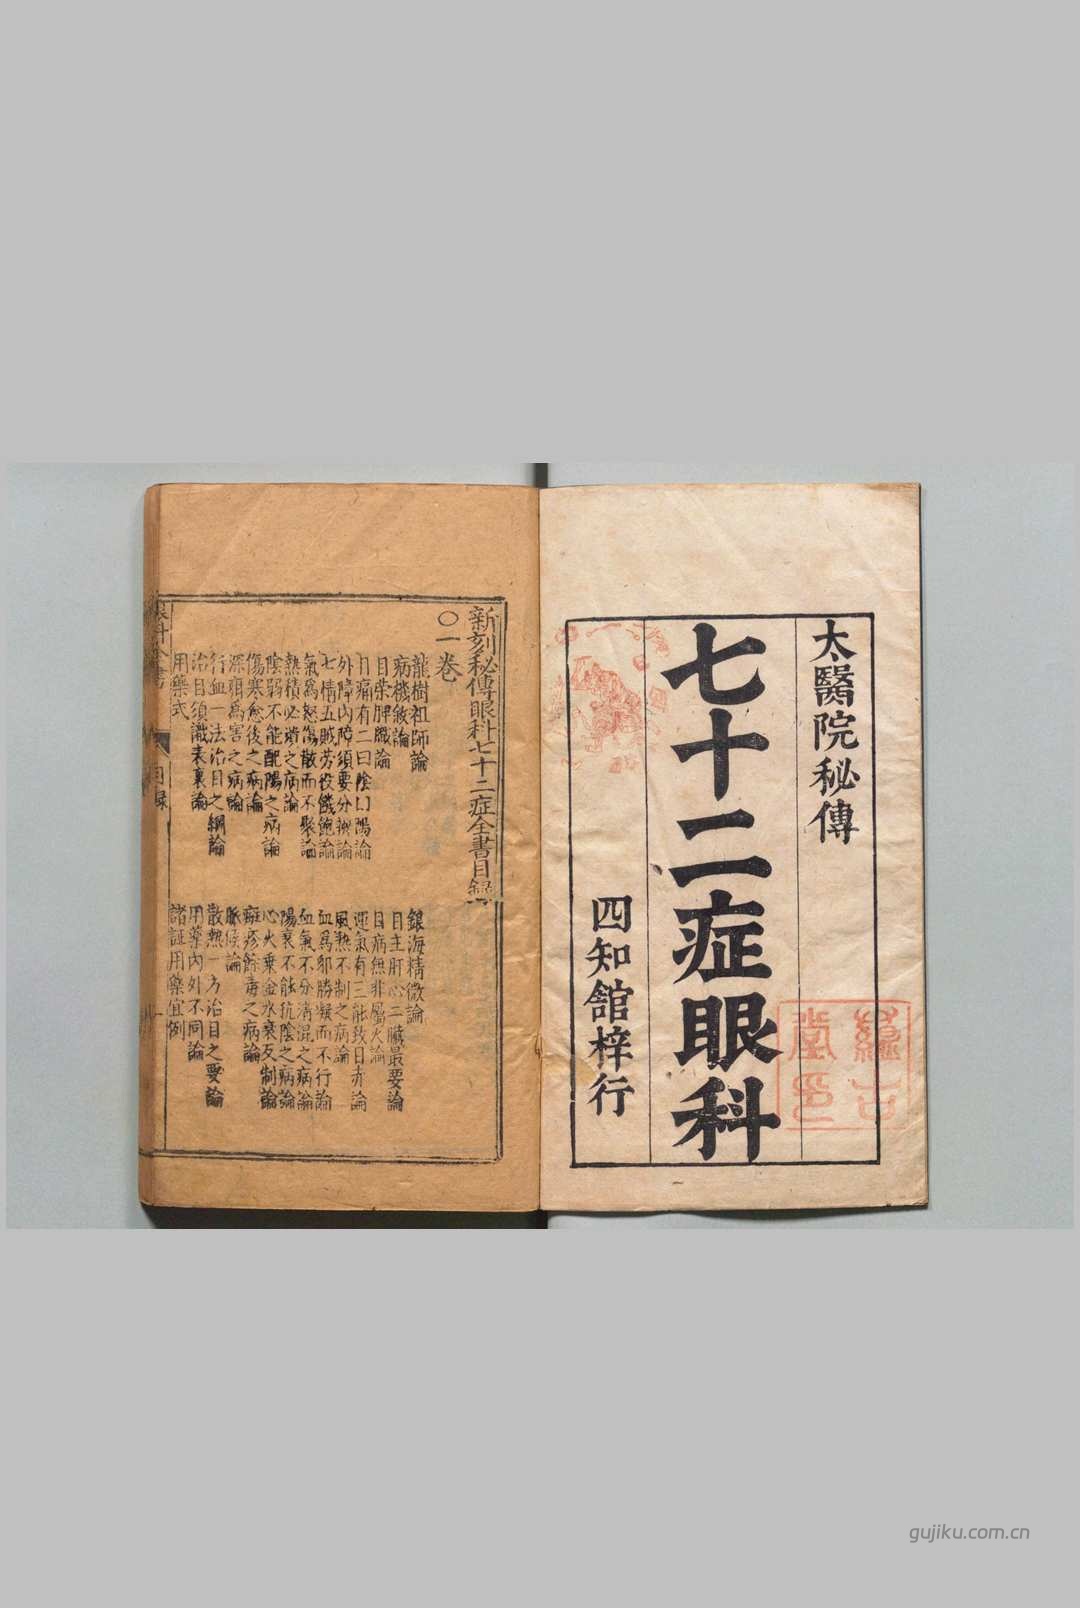 太醫院秘傳
七十二症眼科
四知舘梓行
新刻秘傳眼科七十二症全書目録
〇一卷
龍樹祖師論
銀海精微論
病機敘論
目主肝心二臟最要論
目柴脾臟論
目病無非屬火論
目痛有二曰陰曰陽論
運氣有三能致目赤論
外障內障須要分辨論
風熱不制之病論
七情五賊労役饑飽論
血爲邪勝凝而不行論
氣爲怒傷散而不聚論
血氣不分淆混之病論
熱積必潰之病論
陽衰不能抗陰之病論
陰弱不能配陽之病論
心火乗金水衰反制論
傷寒愈後之病論
癍疹餘毒之病論
深疳爲害之病論
脈候論
行血一法治目之綱論
散熱一方治目之要論
治目須識表裏論
用藥內外不同論
用藥式
諸証用藥宜例
眼科全書
目録
一
gujiku.com.cn